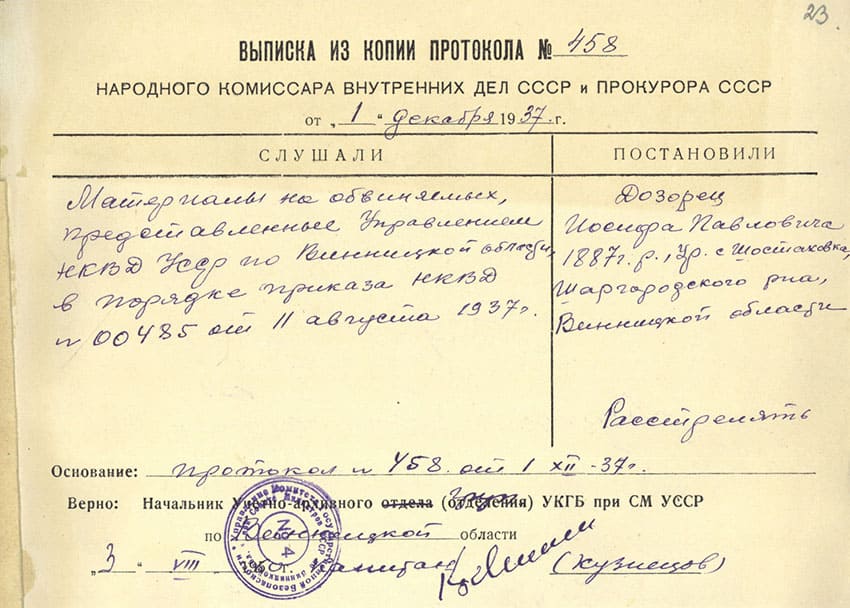 23
ВЫПИСКА ИЗ КОПИИ ПРОТОКОЛА № 458
НАРОДНОГО КОМИССАРА ВНУТРЕННИХ ДЕЛ СССР и ПРОКУРОРА СССР
от „1“ декабря 1937. г.
СЛУШАЛИ
Материалы на обвиняемых,
представленные Управлением
НКВД УССР по Винницкой области,
в порядке приказа НКВД
N 00485 от 11 августа 1937г.
ПОСТАНОВИЛИ
Дозорец
Иосифа Павловича
1887г.р., Ур. с Шостаковка,
Шаргородского р-на,
Винницкой области
Расстрелять
Основание: протокол N 458 от 1 XII-37г.
Верно: Начальник Учетно-архивного отдела (отделения) УКГБ при СМ УССР
по Винницкой области
„3“ VIII г. Капитан (Кузнецов)
N 4